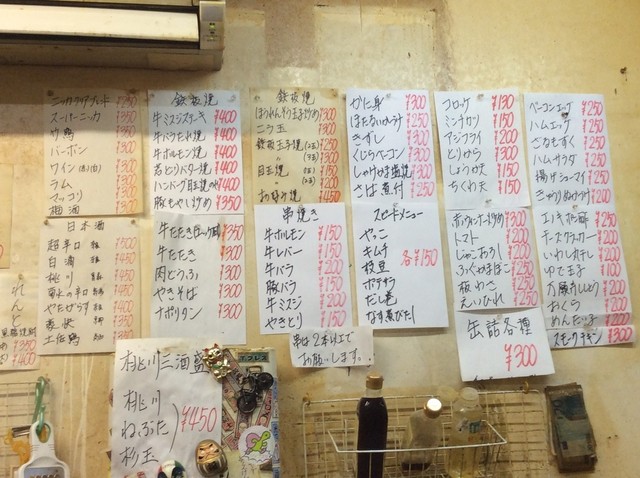 スーパーニッカ ¥350
バーボン ¥300
ワイン(赤)(白) ¥300
ラム
マッコリ
梅酒 ¥300
日本酒
超辛口
白瀧
桃川
やたがらす
土佐鶴
鉄板焼
牛ミスジステーキ ¥400
牛バラたれ焼 ¥400
牛ホルモン焼 ¥400
若どりバター焼 ¥400
ハンバーグ目玉焼 ¥400
豚もやし炒め ¥350
牛たたき ¥300
肉どうふ ¥300
やきそば ¥300
ナポリタン ¥300
鉄板焼
ほうれんそう玉子炒め ¥300
ニラ玉 ¥300
鉄板玉子焼(2玉) ¥250
〃(3玉) ¥300
目玉焼(1玉) ¥150
〃(2玉) ¥250
お好み焼 ¥450
串焼き
牛ホルモン ¥150
牛レバー ¥150
牛バラ ¥200
豚バラ ¥150
牛ミスジ ¥200
やきとり ¥150
串は2本以上で
お願いします。
かに身 ¥300
ほたるいかつうが ¥250
きずし ¥300
くじらベーコン ¥300
しゃけかま塩焼 ¥300
さば煮付 ¥250
スピードメニュー
やっこ
キムチ
枝豆
ポテサラ
だし巻
なす煮びたし
各¥150
コロッケ ¥130
ミンチカツ ¥150
アジフライ ¥200
とりから ¥300
しょうが天 ¥150
ちくわ天 ¥150
赤ウィンナー炒め ¥300
トマト ¥200
じゃこおろし ¥200
ふぐ皮ぽん
板わさ ¥250
えいひれ ¥250
缶詰各種
¥300
ベーコンエッグ ¥250
ハムエッグ ¥250
さなもずく ¥250
ハムサラダ ¥250
揚げシューマイ ¥250
きゅうりぬか漬け ¥200
チーズクラッカー ¥200
いわし丸干し ¥200
ゆで玉子 ¥100
万願寺とうがらし ¥200
おくら ¥200
めんたいこ ¥200
スモークチキン ¥300
桃川三酒盛
桃川
ねぶた
杉玉
¥450